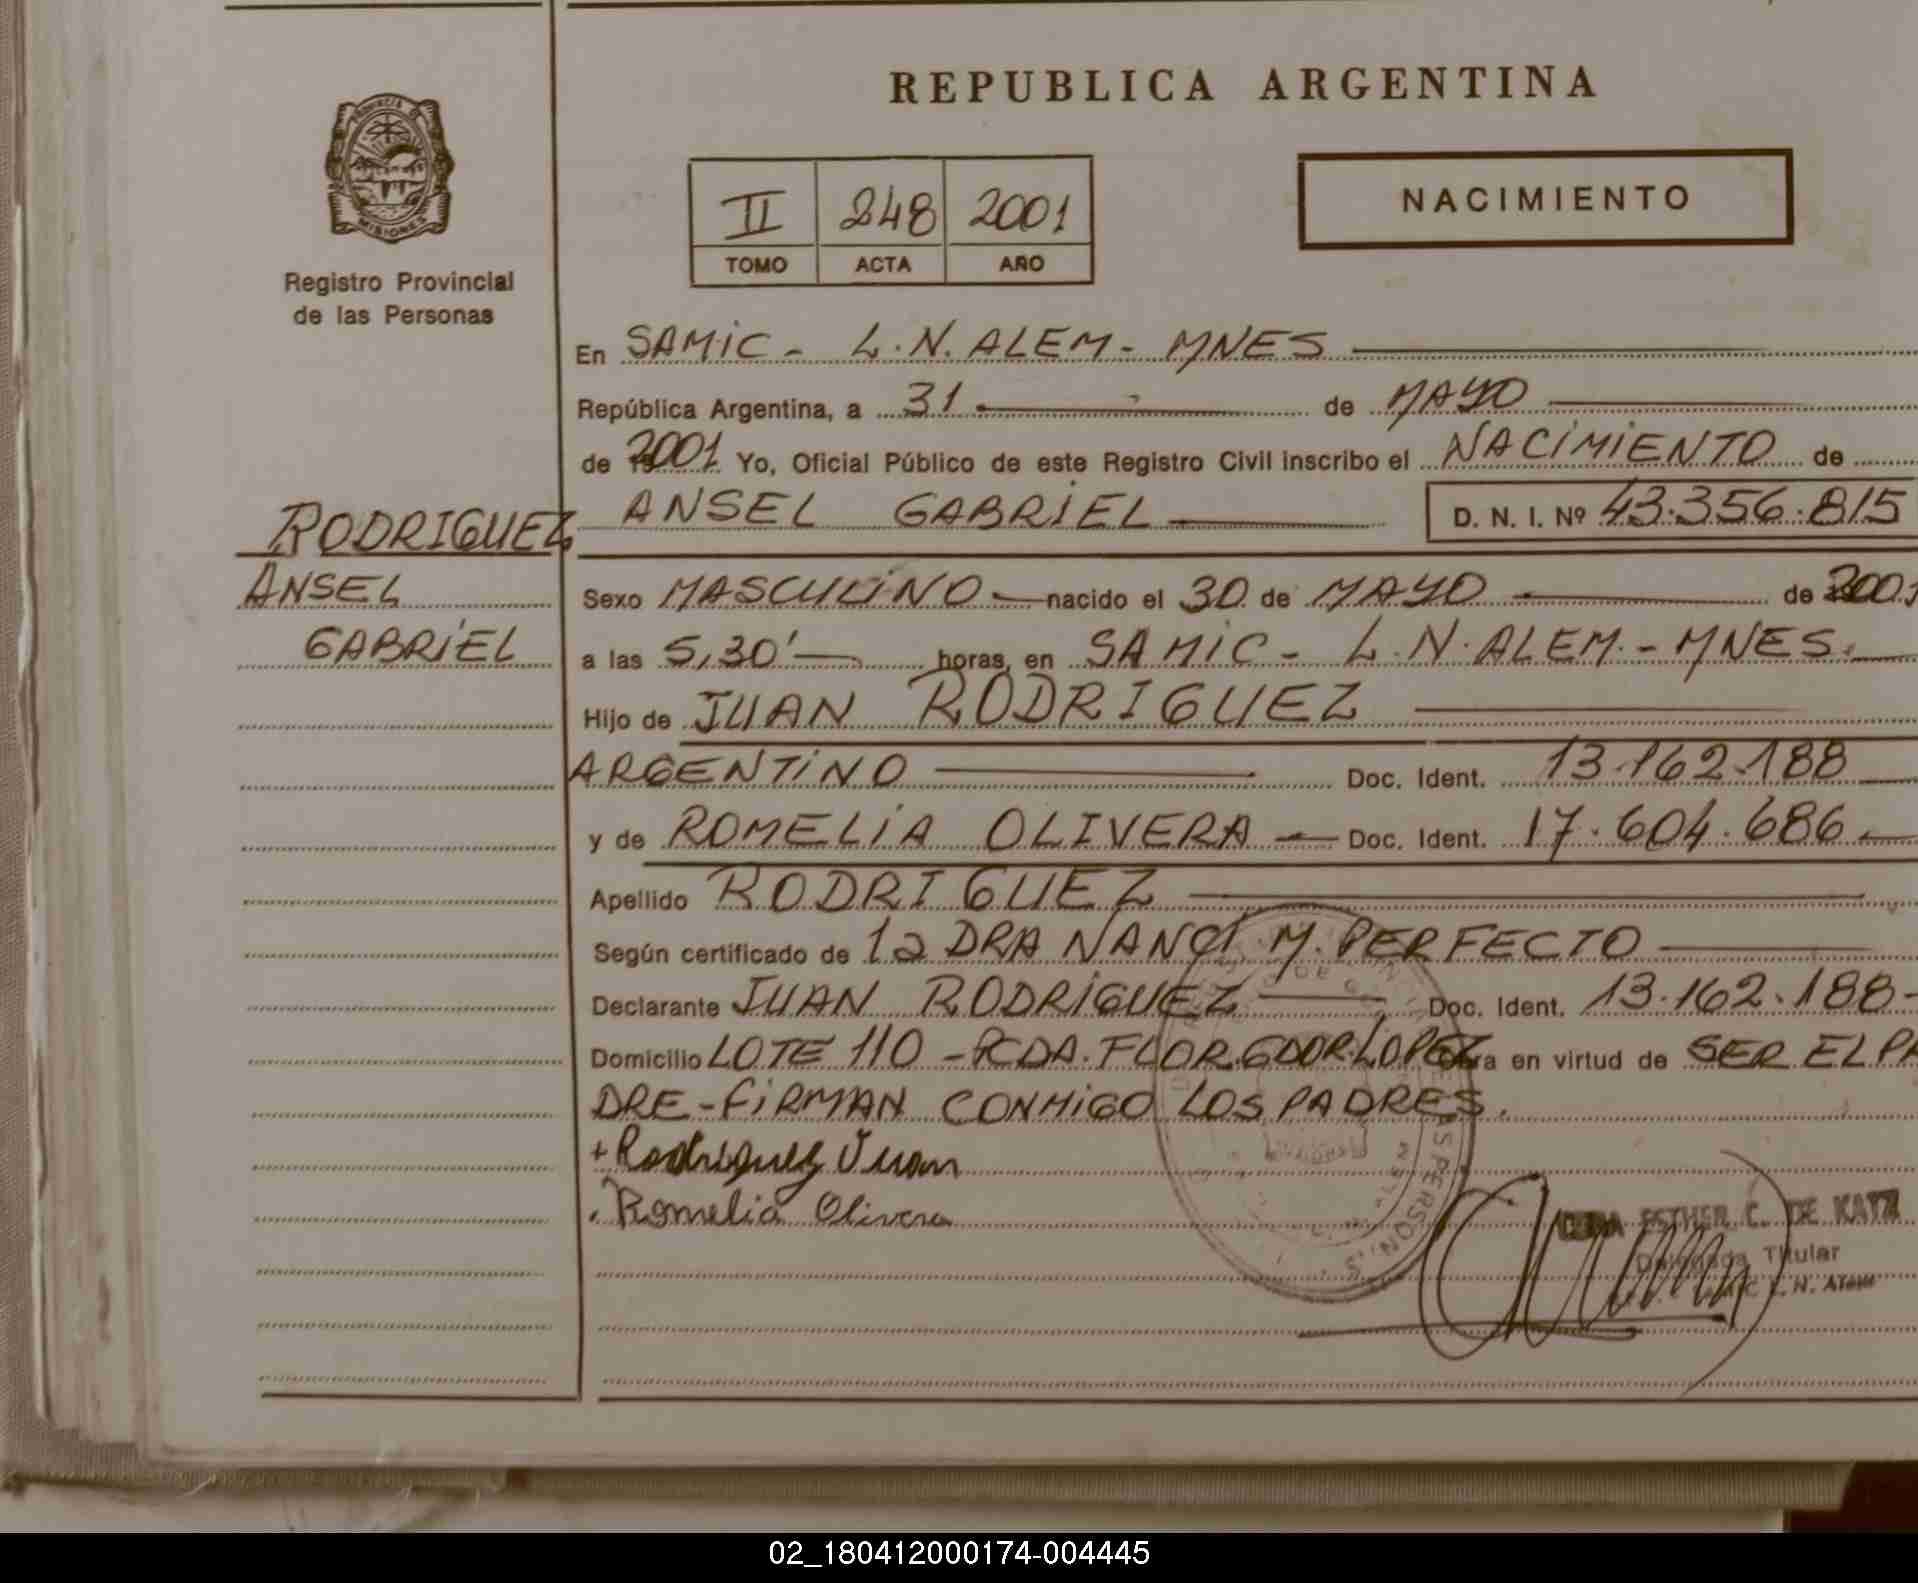 REPUBLICA ARGENTINA
PROVINCIA DE
MISIONES
Registro Provincial
de las Personas
II 248 2001
TOMO ACTA AÑO
NACIMIENTO
En SAMIC - L.N. ALEM - MNES
República Argentina, a 31 de MAYO
de 2001 Yo, Oficial Público de este Registro Civil inscribo el NACIMIENTO de
RODRIGUEZ
ANSEL
GABRIEL
ANSEL GABRIEL D. N. I. Nº 43.356.815
Sexo MASCULINO nacido el 30 de MAYO de 2001
a las 5,30' horas, en SAMIC - L.N. ALEM. - MNES.
Hijo de JUAN RODRIGUEZ
ARGENTINO Doc. Ident. 13.162.188
y de ROMELIA OLIVERA Doc. Ident. 17.604.686
Apellido RODRIGUEZ
Según certificado de la DRA NANCI M. PERFECTO
Declarante JUAN RODRIGUEZ Doc. Ident. 13.162.188
Domicilio LOTE 110 - PCDA. FLOR. GDOR. LOPEZ Obra en virtud de SER EL PA
DRE - FIRMAN CONMIGO LOS PADRES.
+ Rodriguez Juan
Romelia Olivera
ESTHER C. DE KATZ
Delegada Titular
L. N. ALEM
02_180412000174-004445